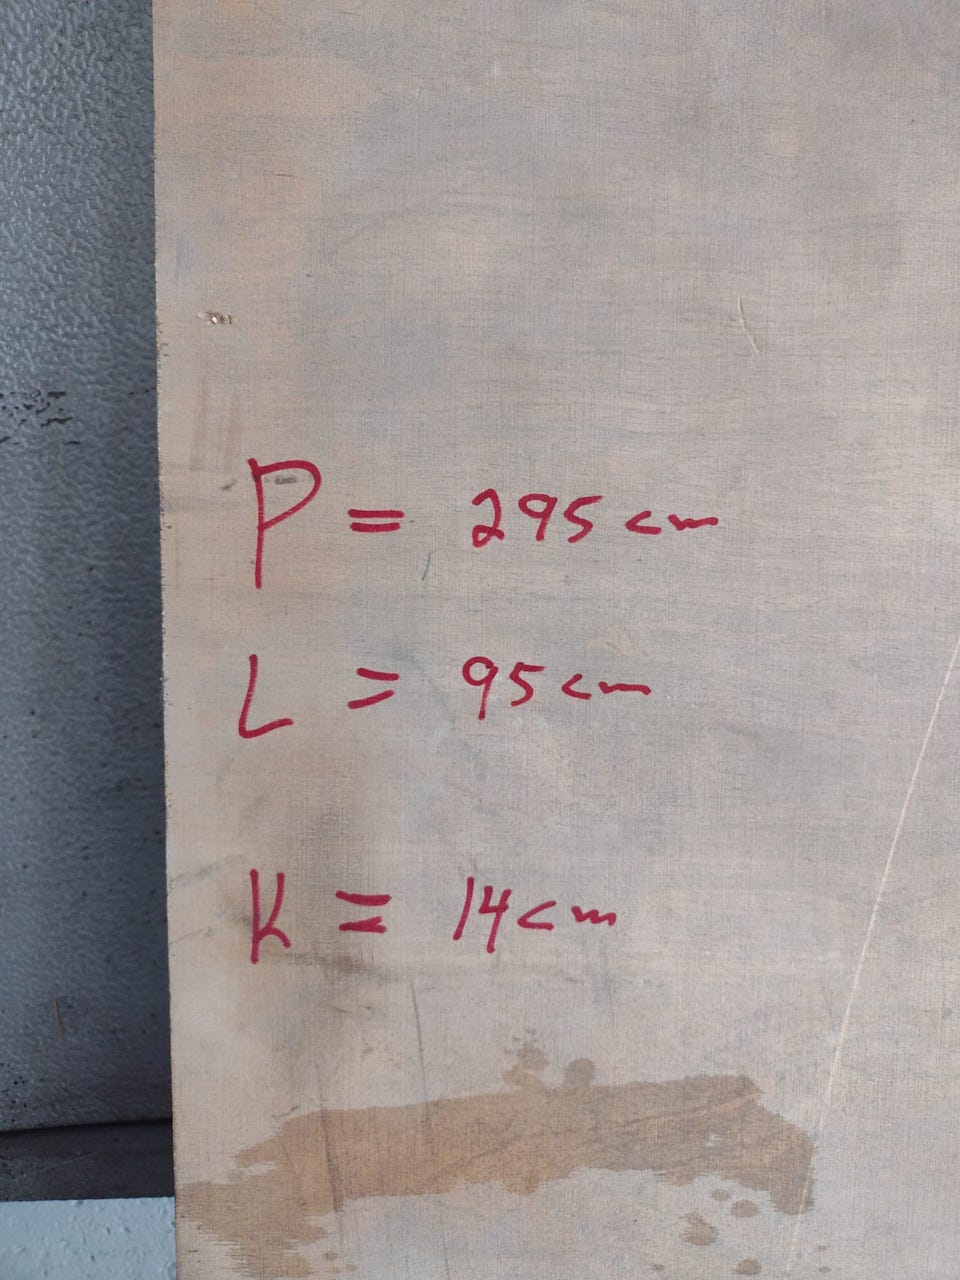 P = 295 cm
L = 95 cm
K = 14 cm